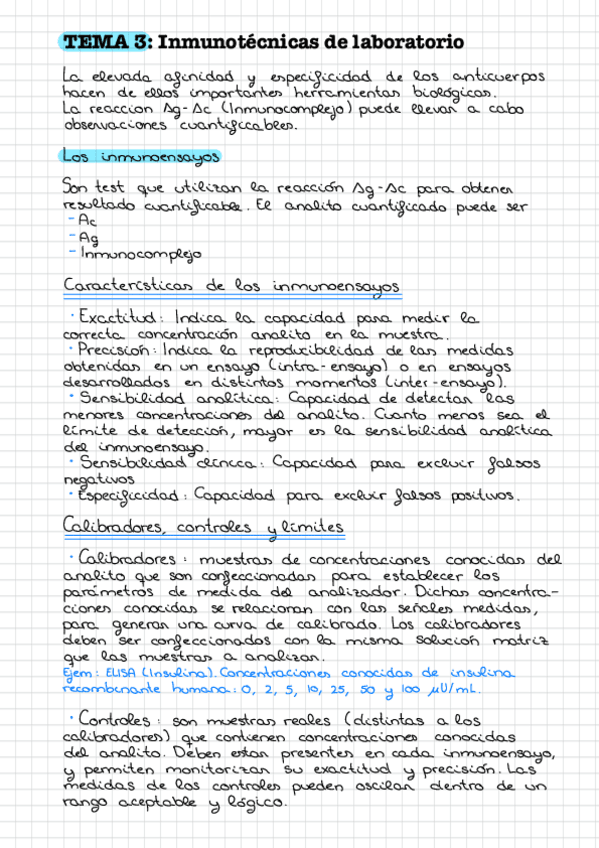 TEMA 3: Inmunotécnicas de laboratorio
La elevada afinidad y especificidad de los anticuerpos
hacen de ellos importantes herramientas biológicas.
La reaccion Ag-Ac (Inmunocomplejo) puede llevar a cabo
observaciones cuantificables.
Los inmunoensayos
Son test que utilizan la reacción Ag-Ac para obtener
resultado cuantificable. El analito cuantificado puede ser
- Ac
- Ag
- Inmunocomplejo
Características de los inmunoensayos
· Exactitud: Indica la capacidad para medir la
correcta concentración analito en la muestra.
· Precisión: Indica la reproducibilidad de las medidas
obtenidas en un ensayo (intra-ensayo) o en ensayos
desarrollados en distintos momentos (inter-ensayo).
· Sensibilidad analítica: Capacidad de detectar las
menores concentraciones del analito. Cuanto menos sea el
límite de detección, mayor es la sensibilidad analítica
del inmunoensayo.
· Sensibilidad clínica: Capacidad para excluir falsos
negativos
· Especificidad: Capacidad para excluir falsos positivos.
Calibradores, controles y límites
· Calibradores: muestras de concentraciones conocidas del
analito que son confeccionadas para establecer los
parámetros de medida del analizador. Dichas concentra-
ciones conocidas se relacionan con las señales medidas,
para generar una curva de calibrado. Los calibradores
deben ser confeccionados con la misma solución matriz
que las muestras a analizar.
Ejem: ELISA (Insulina). Concentraciones conocidas de insulina
recombinante humana: 0, 2, 5, 10, 25, 50 y 100 μU/mL.
· Controles: son muestras reales (distintas a los
calibradores) que contienen concentraciones conocidas
del analito. Deben estar presentes en cada inmunoensayo,
y permiten monitorizar su exactitud y precisión. Las
medidas de los controles pueden oscilar dentro de un
rango aceptable y lógico.